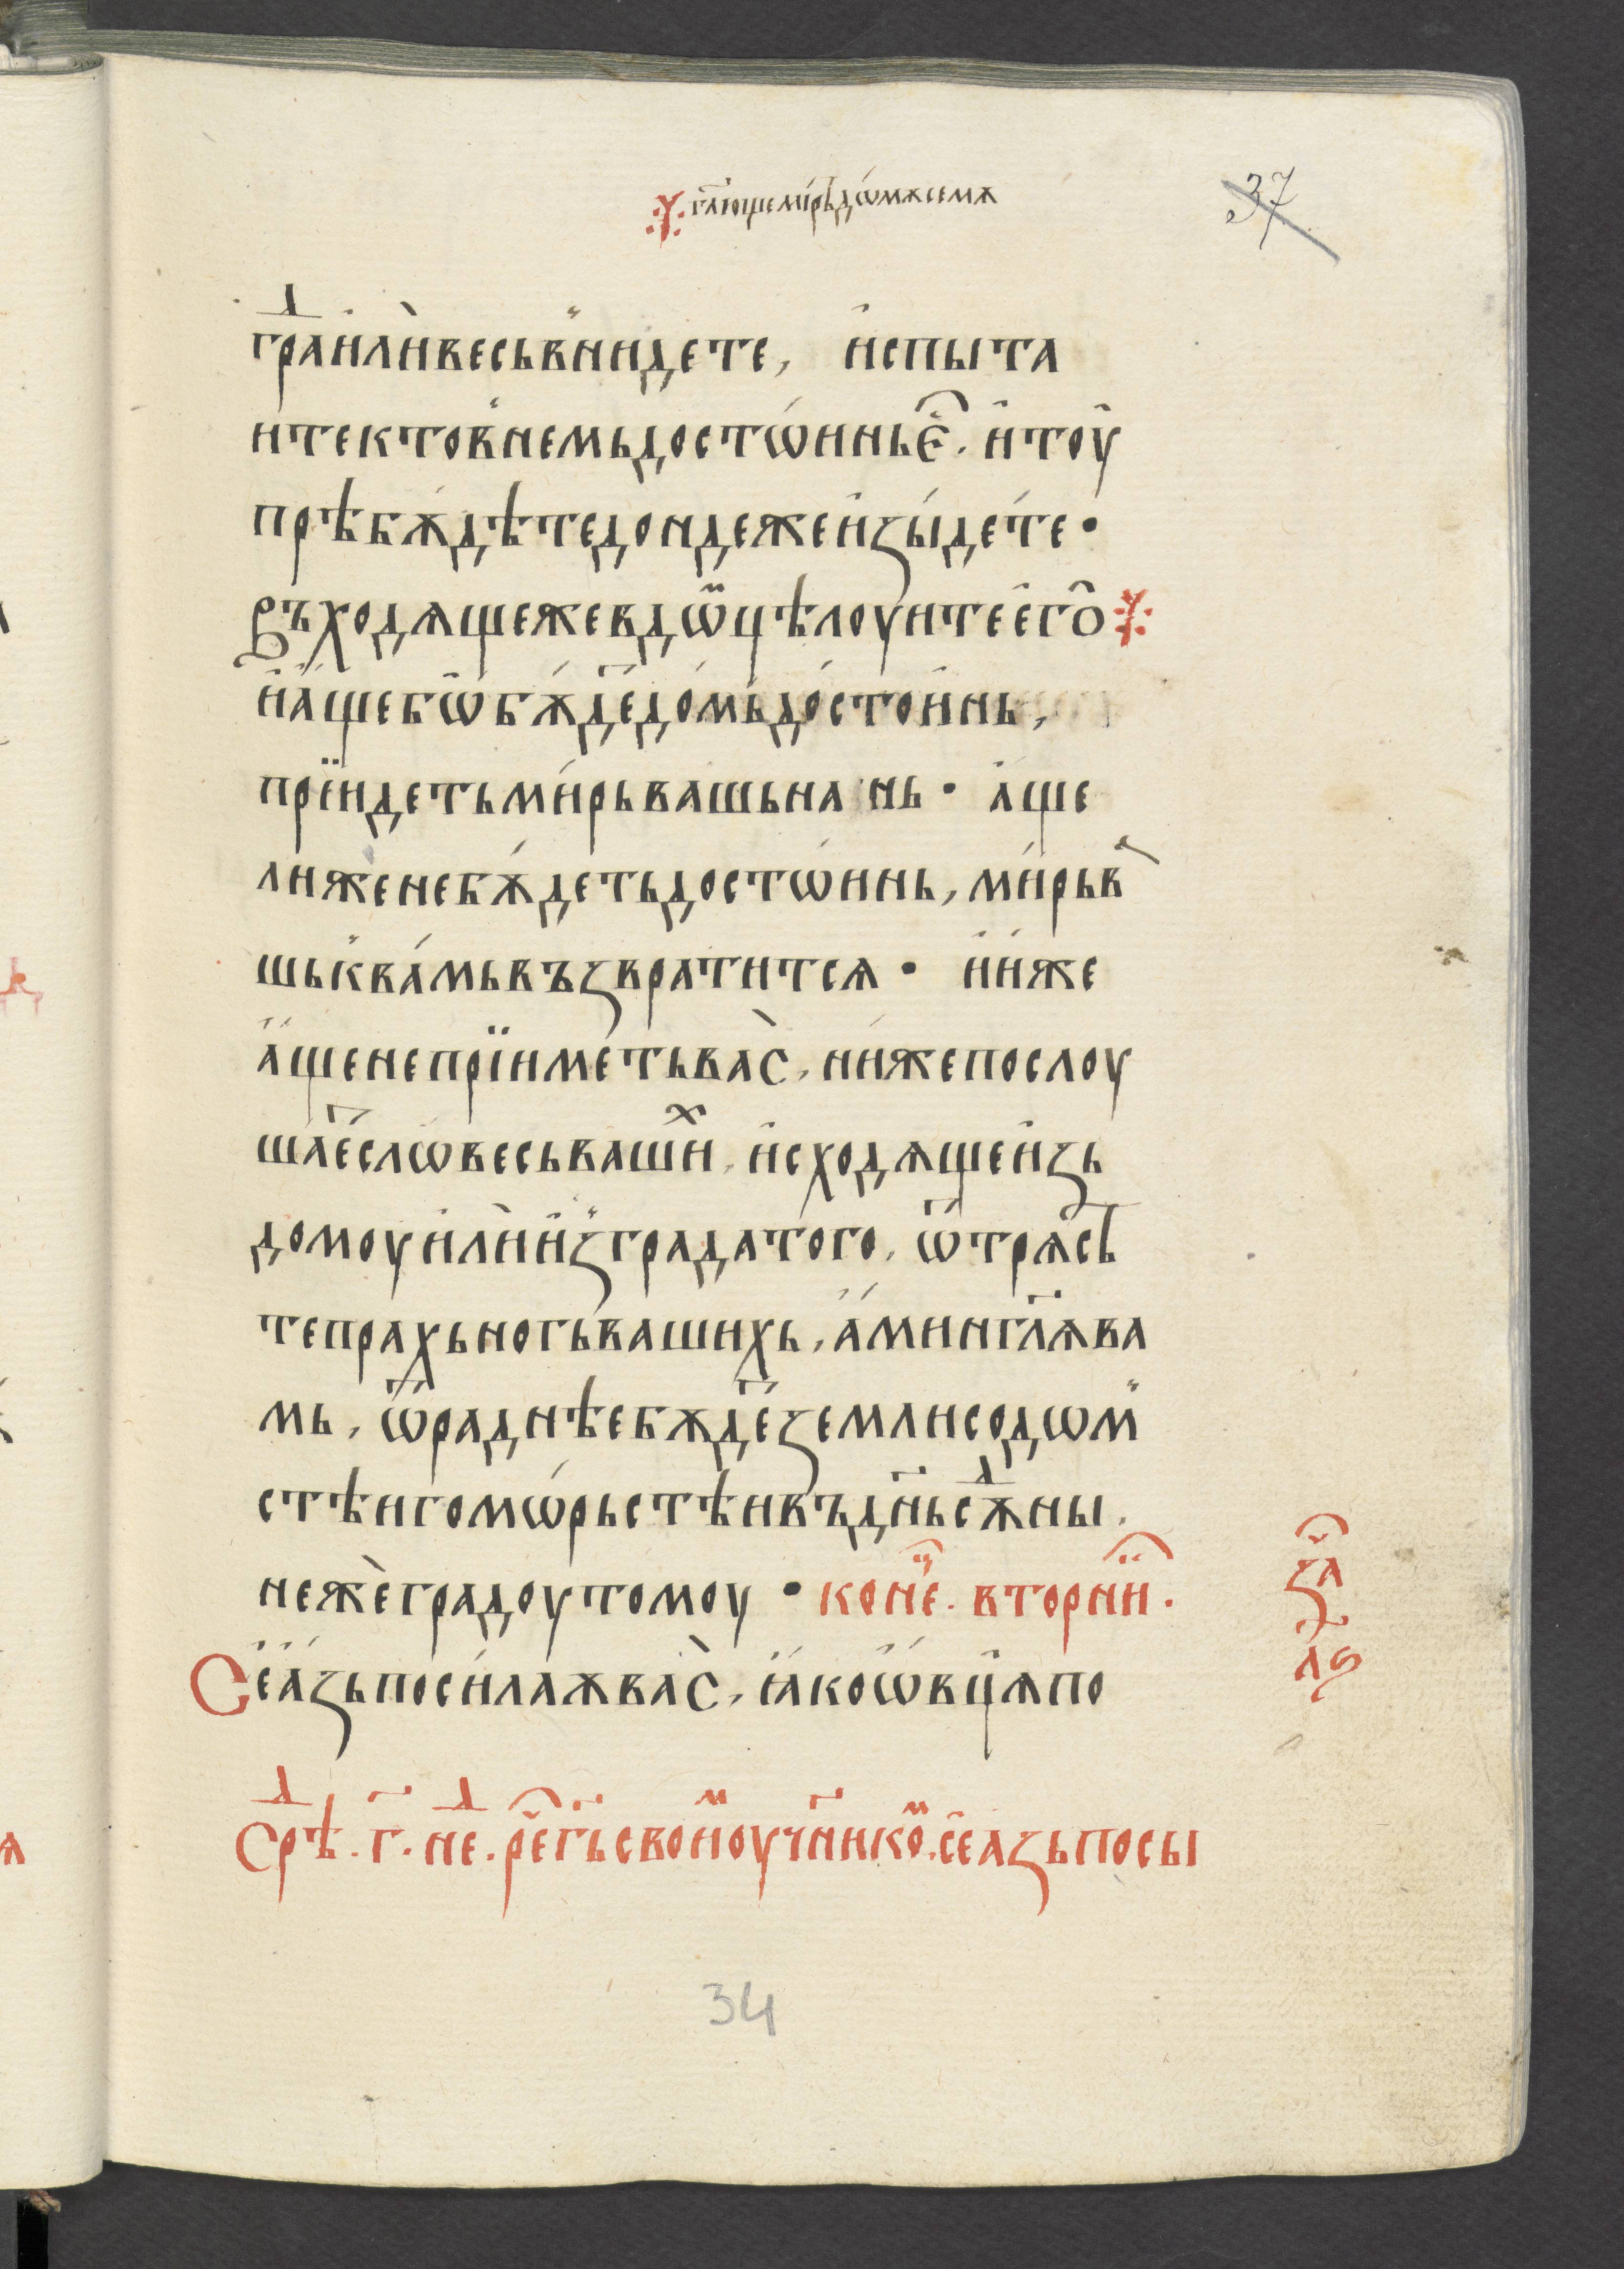 гл҃юще миръ дѡмѫ семѫ
37
граⷣ или весь вьнидете, испыта
ите кто в немь достѡинь є҆. и тоу
прѣбѫдѣте дондеже изыдете •
Въходѧще же в дѡⷨ цѣлоуите его
и аще бѡ бѫдеⷮ домь достоинь,
прїидеть мирь вашь на нь • аще
ли же не бѫдеть достѡинь, мирь ва
шь к вамь възвратитсѧ • и иже
аще не прїиметь вас, ни же послоу
шаеⷮ словесь вашиⷯ, исходѧще изь
домоу или из града того, ѿтрѧсѣ
те прахь ногь вашихь, аминь гл҃ѧ ва
мь, ѿраднѣе бѫдеⷮ земли содѡм
стѣи гомѡрьстѣи въ дн҃ь сѫⷣны.
неже градоу томоу • коне. вторни.
Се азь посилаѫ вас, ꙗко ѡвцѧ по
за
лѕ
Срѣⷣ. г҃. неⷣ. рече г҃ь своиⷨ оуч҃никоⷨ. се азь посы
34